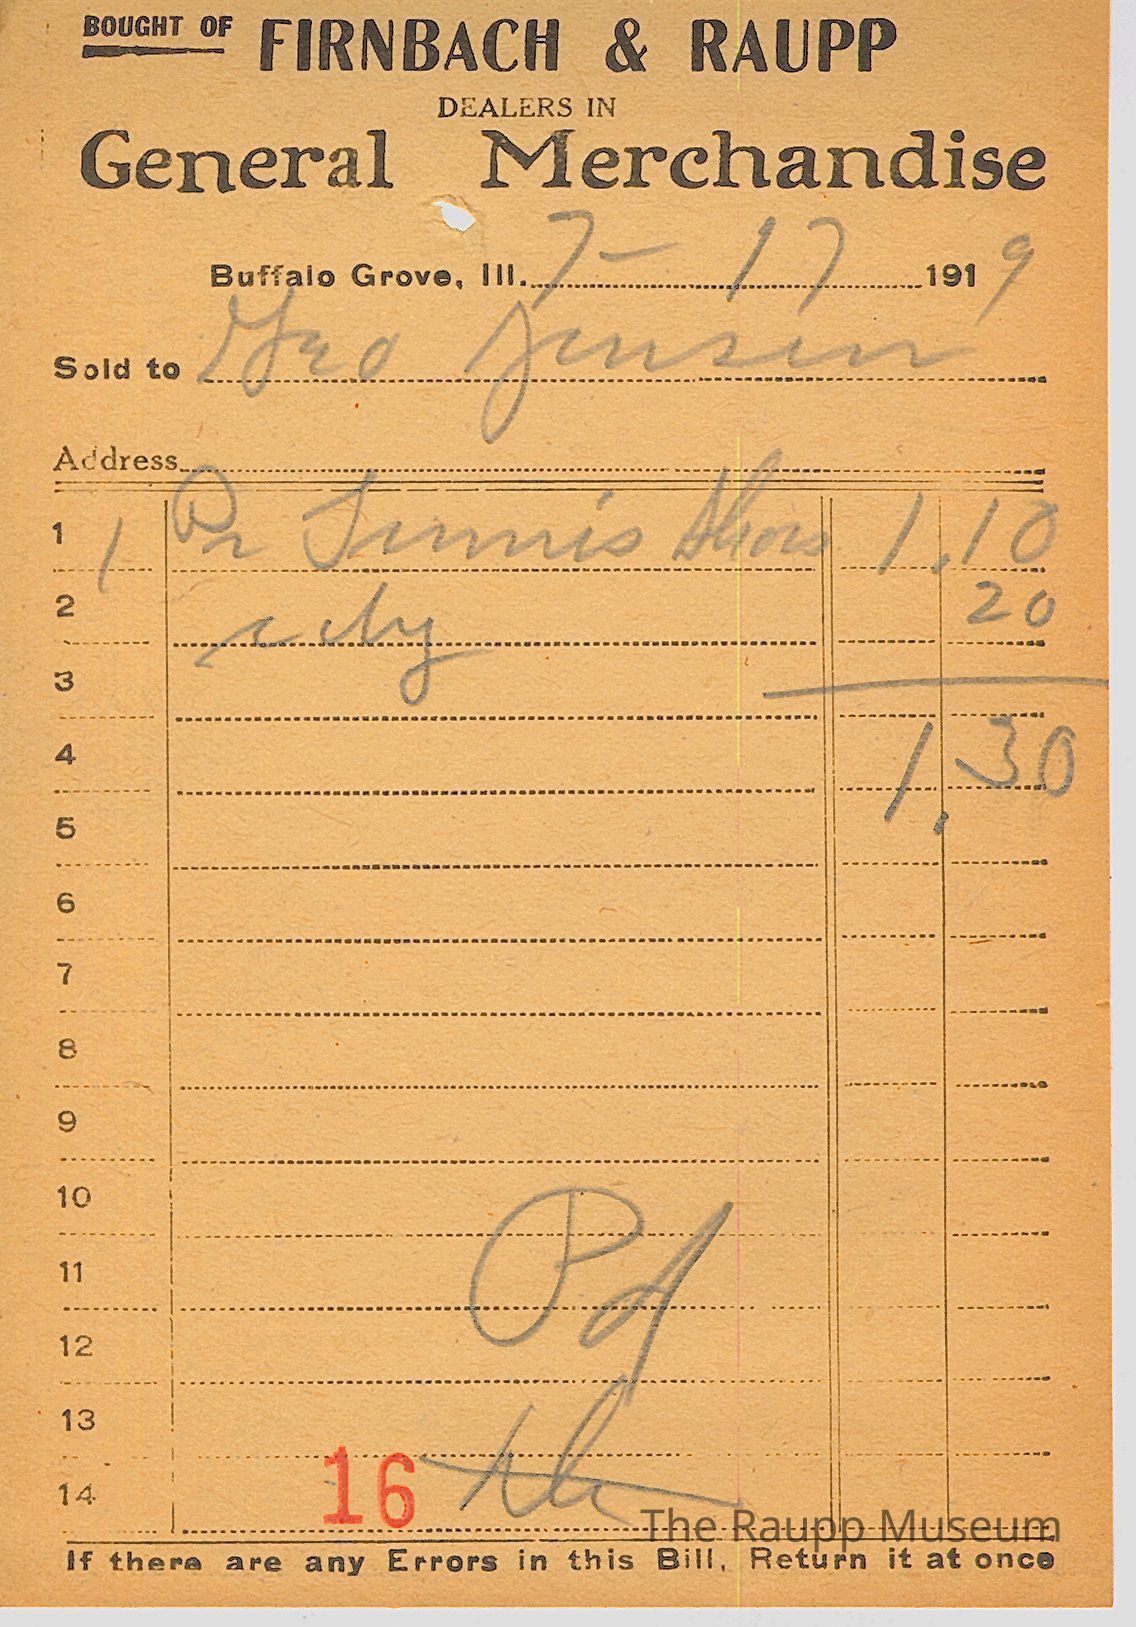 BOUGHT OF FIRNBACH & RAUPP
DEALERS IN
General Merchandise
Buffalo Grove, Ill. 7 - 17 1919
Sold to Geo Jensen
Address
1 1 Pr Tennis Shoes 1.10
2 20
3
4 1.30
5
6
7
8
9
10
11 Pd
12
13
14 16
The Raupp Museum
If there are any Errors in this Bill, Return it at once